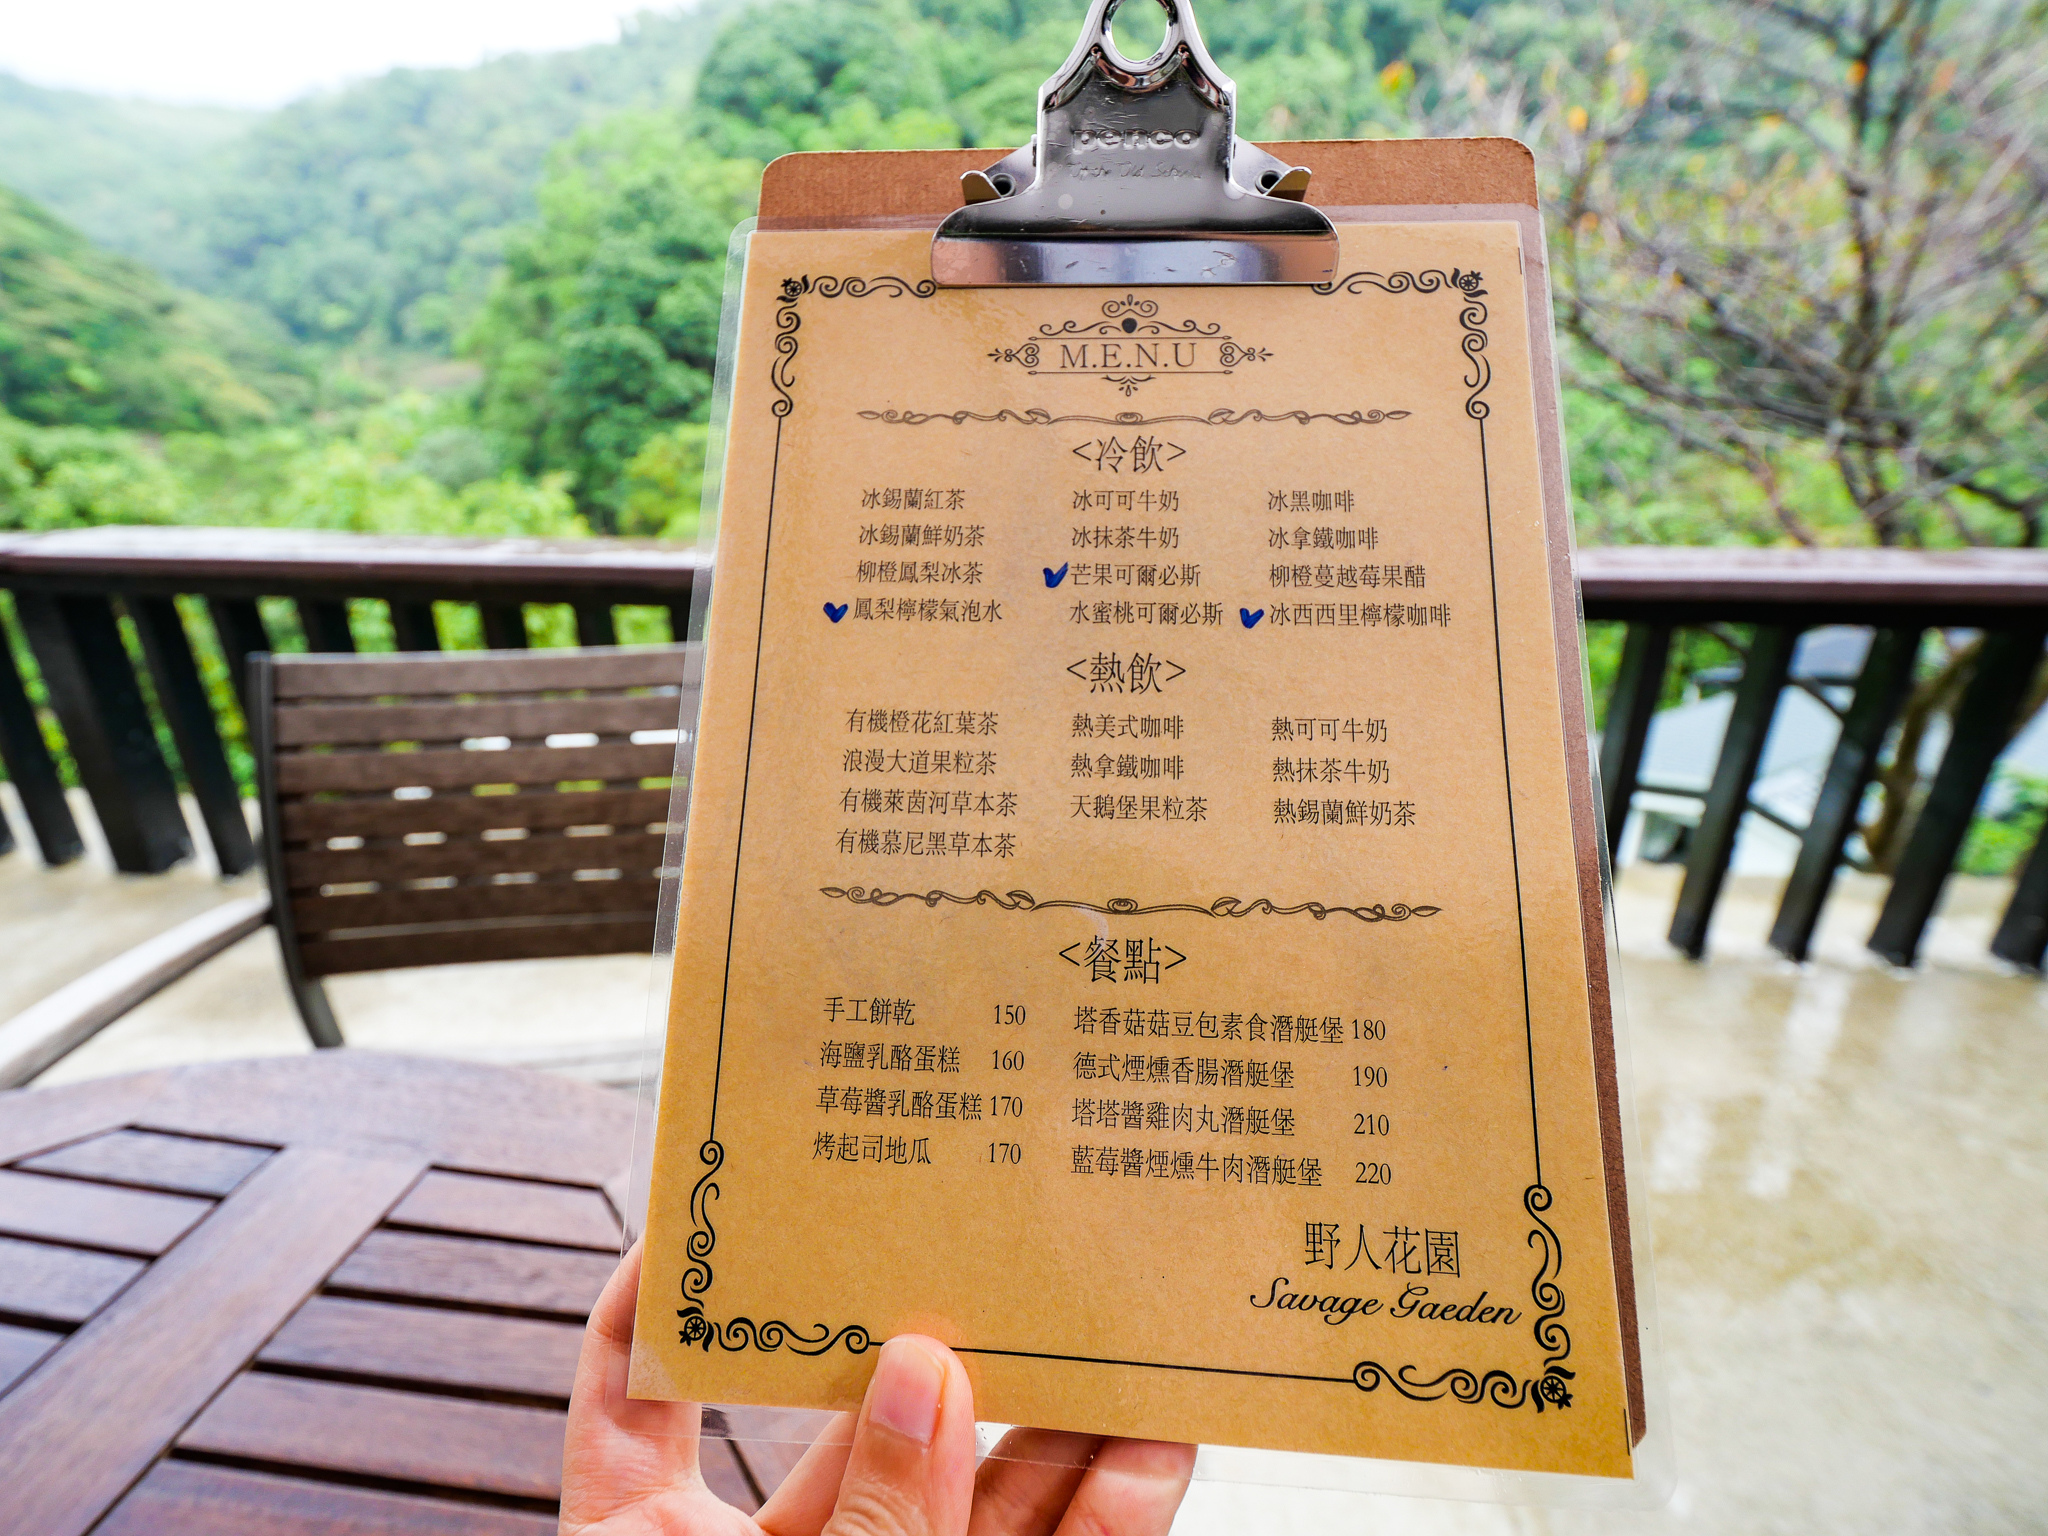 penco
M.E.N.U
<冷飲>
冰錫蘭紅茶 冰可可牛奶 冰黑咖啡
冰錫蘭鮮奶茶 冰抹茶牛奶 冰拿鐵咖啡
柳橙鳳梨冰茶 芒果可爾必斯 柳橙蔓越莓果醋
鳳梨檸檬氣泡水 水蜜桃可爾必斯 冰西西里檸檬咖啡
<熱飲>
有機橙花紅葉茶 熱美式咖啡 熱可可牛奶
浪漫大道果粒茶 熱拿鐵咖啡 熱抹茶牛奶
有機萊茵河草本茶 天鵝堡果粒茶 熱錫蘭鮮奶茶
有機慕尼黑草本茶
<餐點>
手工餅乾 150 塔香菇菇豆包素食潛艇堡 180
海鹽乳酪蛋糕 160 德式煙燻香腸潛艇堡 190
草莓醬乳酪蛋糕 170 塔塔醬雞肉丸潛艇堡 210
烤起司地瓜 170 藍莓醬煙燻牛肉潛艇堡 220
野人花園
Savage Gaeden